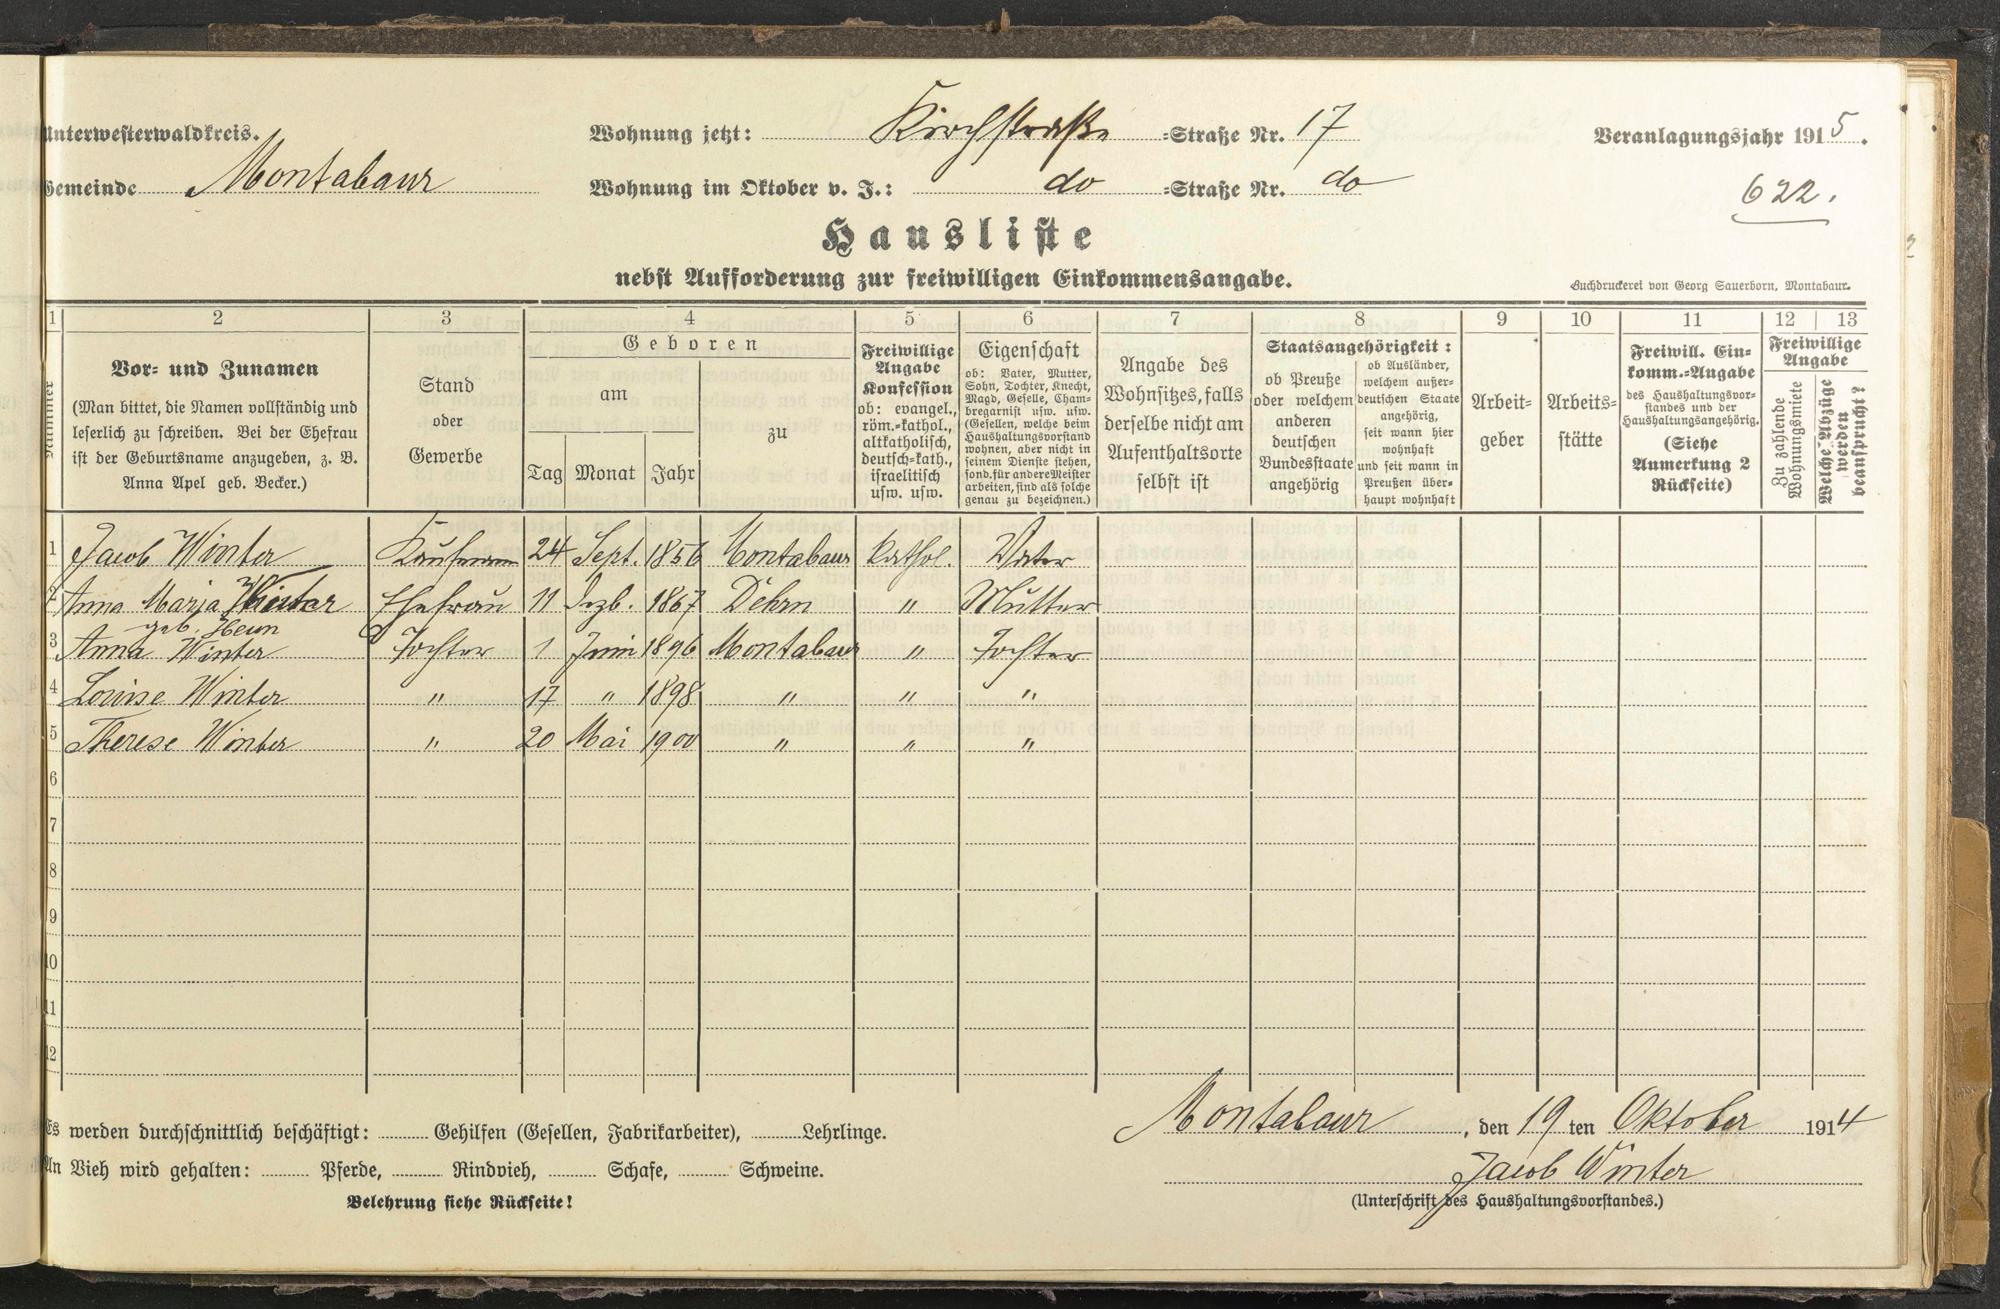 Unterwesterwaldkreis.
Wohnung jetzt: Kirchstraße =Straße Nr. 17
Veranlagungsjahr 1915.
Gemeinde Montabaur
Wohnung im Oktober v. J.: do =Straße Nr. do
622.
Hausliste
nebst Aufforderung zur freiwilligen Einkommensangabe.
Buchdruckerei von Georg Sauerborn, Montabaur.
1 2 3 4 5 6 7 8 9 10 11 12 13
Nummer
Vor- und Zunamen
(Man bittet, die Namen vollständig und
leserlich zu schreiben. Bei der Ehefrau
ist der Geburtsname anzugeben, z. B.
Anna Apel geb. Becker.)
Stand
oder
Gewerbe
Geboren
am
Tag Monat Jahr
zu
Freiwillige
Angabe
Konfession
ob: evangel.,
röm.-kathol.,
altkatholisch,
deutsch-kath.,
israelitisch
usw. usw.
Eigenschaft
ob: Vater, Mutter,
Sohn, Tochter, Knecht,
Magd, Geselle, Cham-
bregarnist usw. usw.
(Gesellen, welche beim
Haushaltungsvorstand
wohnen, aber nicht in
seinem Dienste stehen,
sond. für andere Meister
arbeiten, sind als solche
genau zu bezeichnen.)
Angabe des
Wohnsitzes, falls
derselbe nicht am
Aufenthaltsorte
selbst ist
Staatsangehörigkeit:
ob Preuße
oder welchem
anderen
deutschen
Bundesstaate
angehörig
ob Ausländer,
welchem außer-
deutschen Staate
angehörig,
seit wann hier
wohnhaft
und seit wann in
Preußen über-
haupt wohnhaft
Arbeit-
geber
Arbeits-
stätte
Freiwill. Ein-
komm.-Angabe
des Haushaltungsvor-
standes und der
Haushaltungsangehörig.
(Siehe
Anmerkung 2
Rückseite)
Freiwillige
Angabe
Zu zahlende
Wohnungsmiete
Welche Abzüge
werden
beansprucht?
1 Jacob Winter Kaufmann 24 Sept. 1856 Montabaur kathol. Vater
2 Anna Maria Winter Ehefrau 11 Dezb. 1867 Dehrn " Mutter
geb. Heun
3 Anna Winter Tochter 1 Juni 1896 Montabaur " Tochter
4 Louise Winter " 17 " 1898 " " "
5 Therese Winter " 20 Mai 1900 " " "
6
7
8
9
10
11
12
Es werden durchschnittlich beschäftigt: Gehilfen (Gesellen, Fabrikarbeiter), Lehrlinge.
An Vieh wird gehalten: Pferde, Rindvieh, Schafe, Schweine.
Belehrung siehe Rückseite!
Montabaur, den 19 ten Oktober 1914
Jacob Winter
(Unterschrift des Haushaltungsvorstandes.)